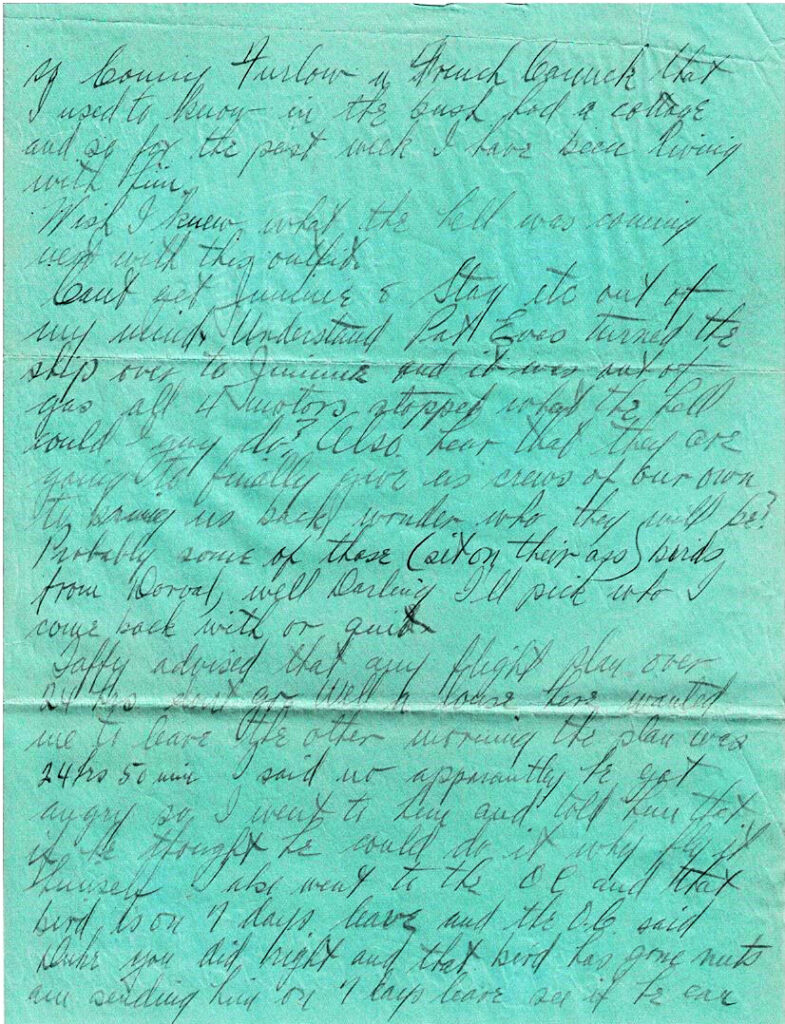 Furlow a French Canuck that
I used to know in the bush had a cottage
and so for the past week I have been living
with him.
Wish I knew what the hell was coming
next with this outfit.
Cant get Jimmie & Stag etc out of
my mind. Understand Pat Eves turned the
ship over to Jimmie and it was out of
gas all 4 motors stopped what the hell
could a guy do? Also hear that they are
going to finally give us crews of our own
to bring us back wonder who they will be?
Probably some of those (sit on their ass) birds
from Dorval, well Darling I'll pick who I
come back with or quit.
Taffy advised that any flight plan over
24 hrs dont go. Well house here wanted
me to leave the other morning the plan was
24 hrs 50 min I said no apparantly he got
angry so I went to him and told him that
if he thought he could do it why fly it
himself I also went to the O.C and that
bird is on 7 days leave and the O.C. said
Duke you did right and that bird has gone nuts
am sending him on 7 days leave see if he can